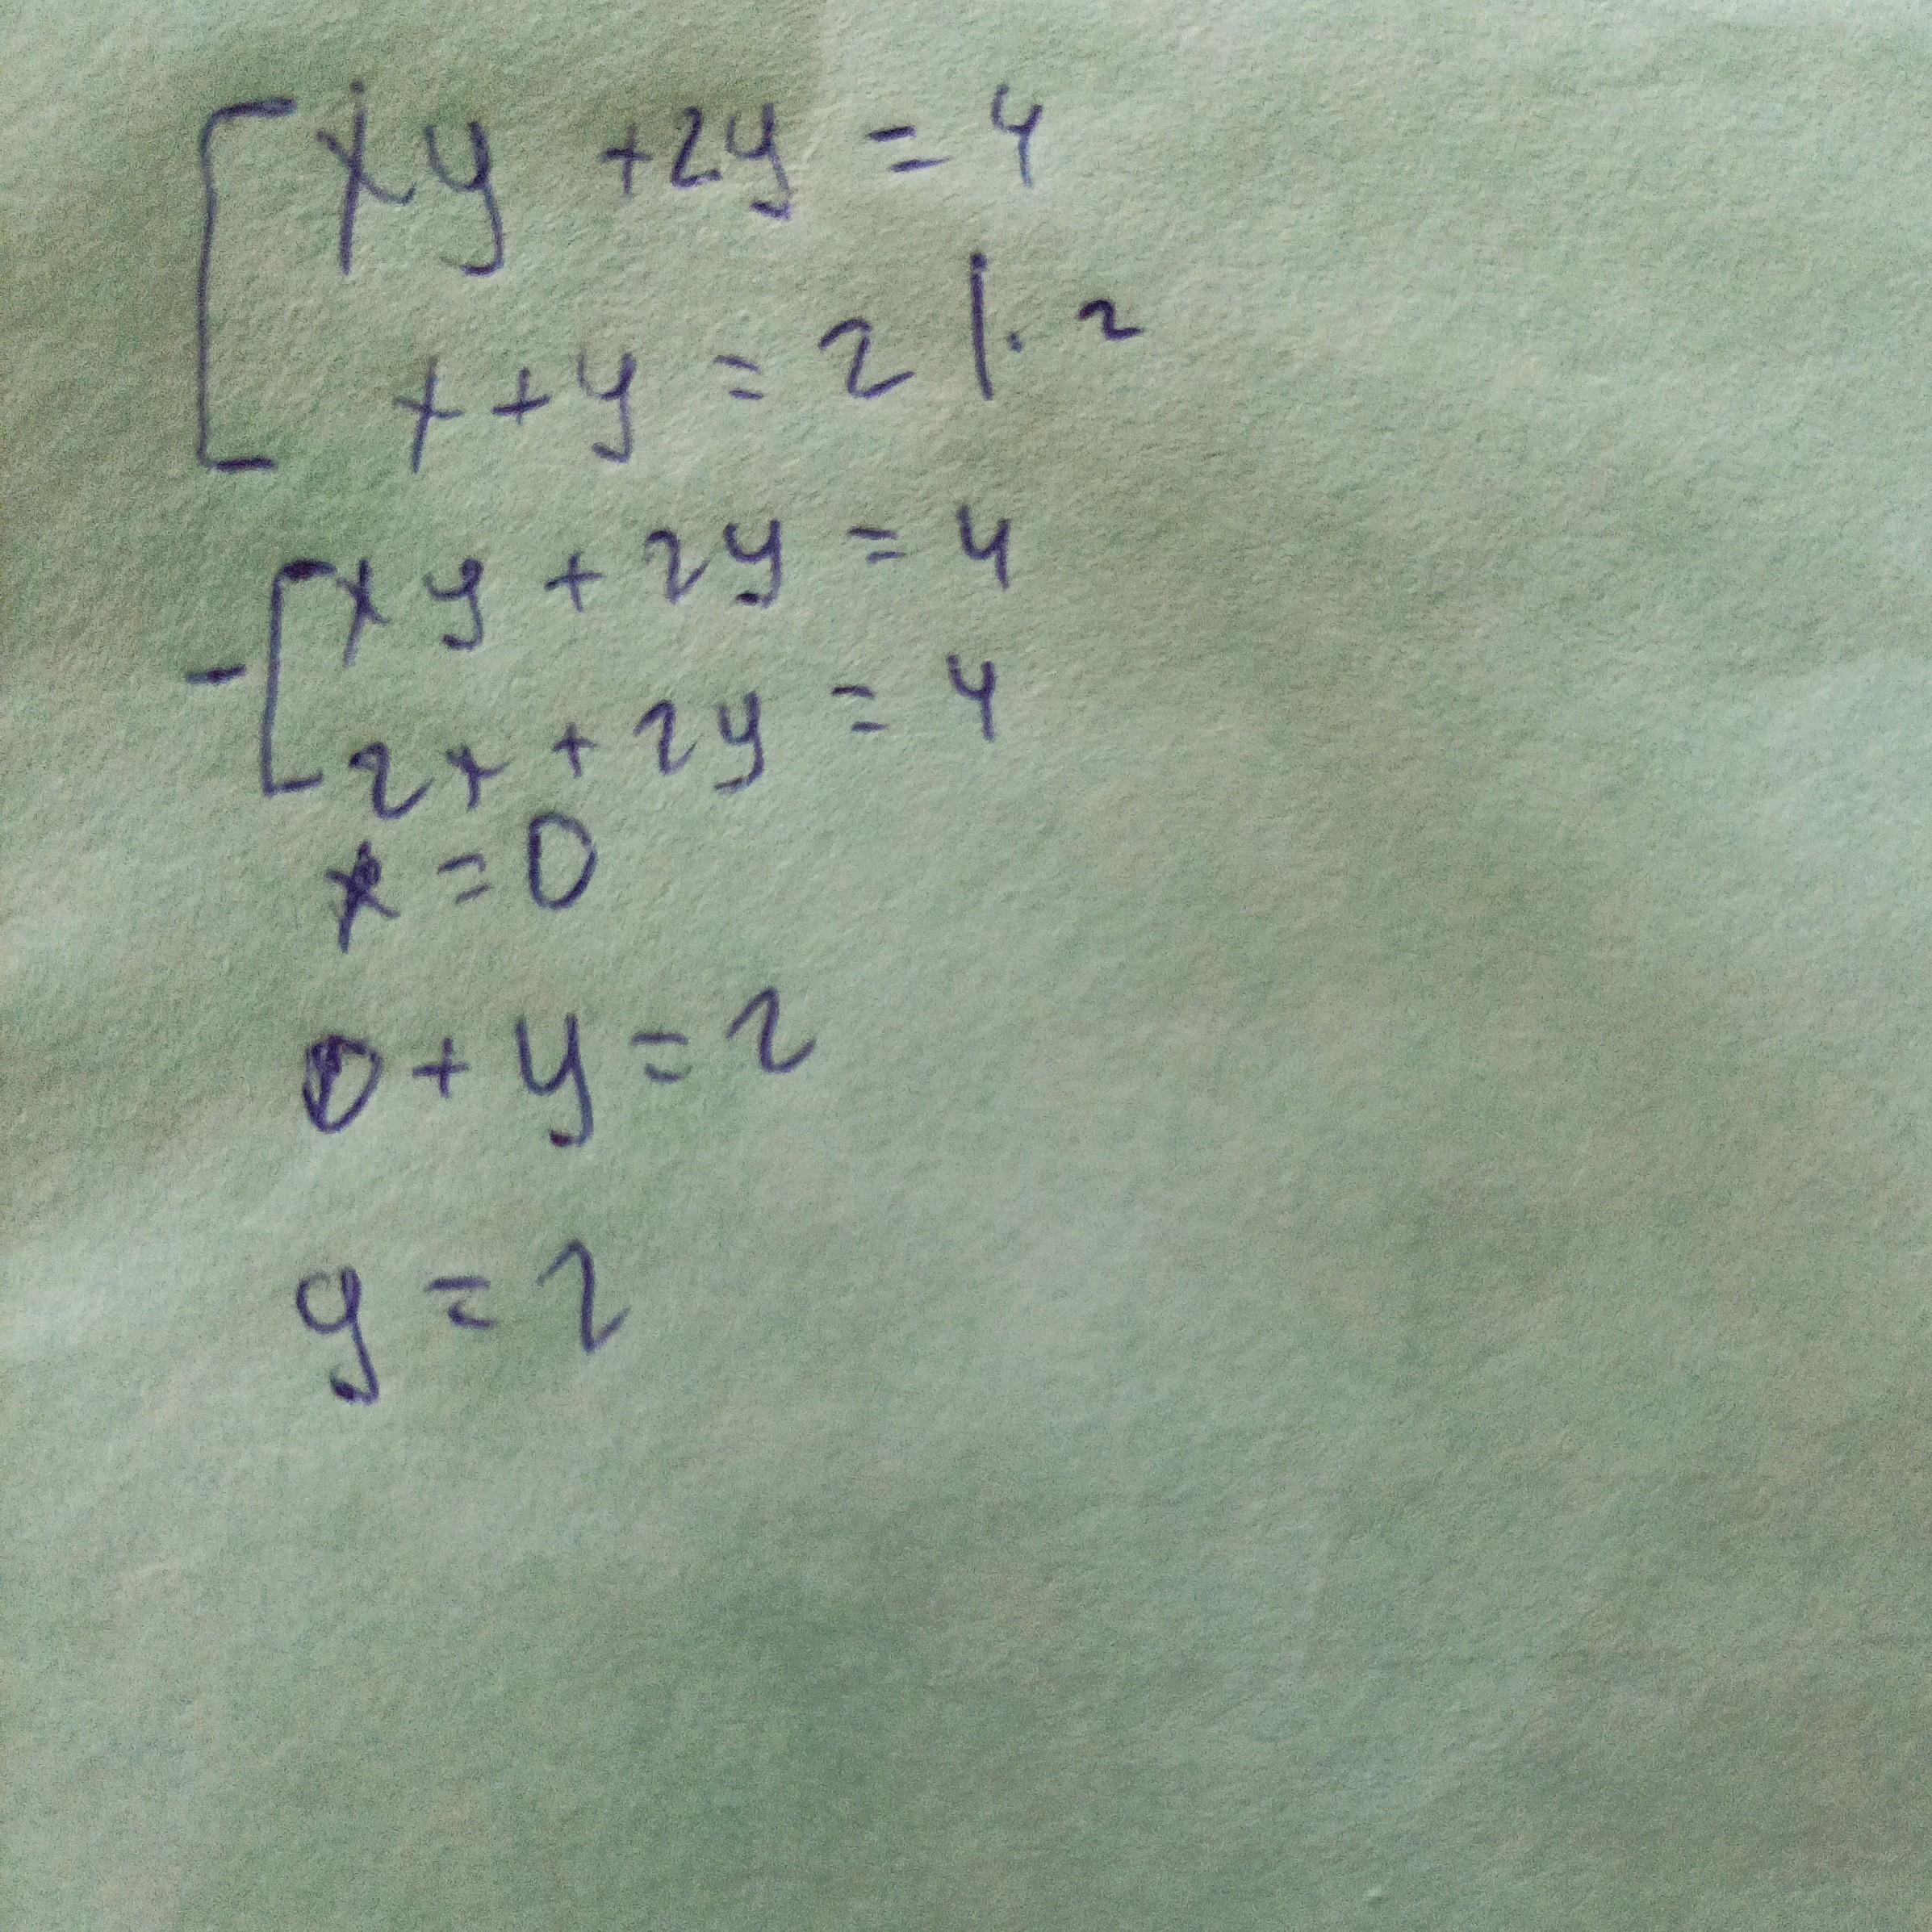 xy + 2y = 4
x + y = 2 | · 2
xy + 2y = 4
-
2x + 2y = 4
x = 0
0 + y = 2
y = 2